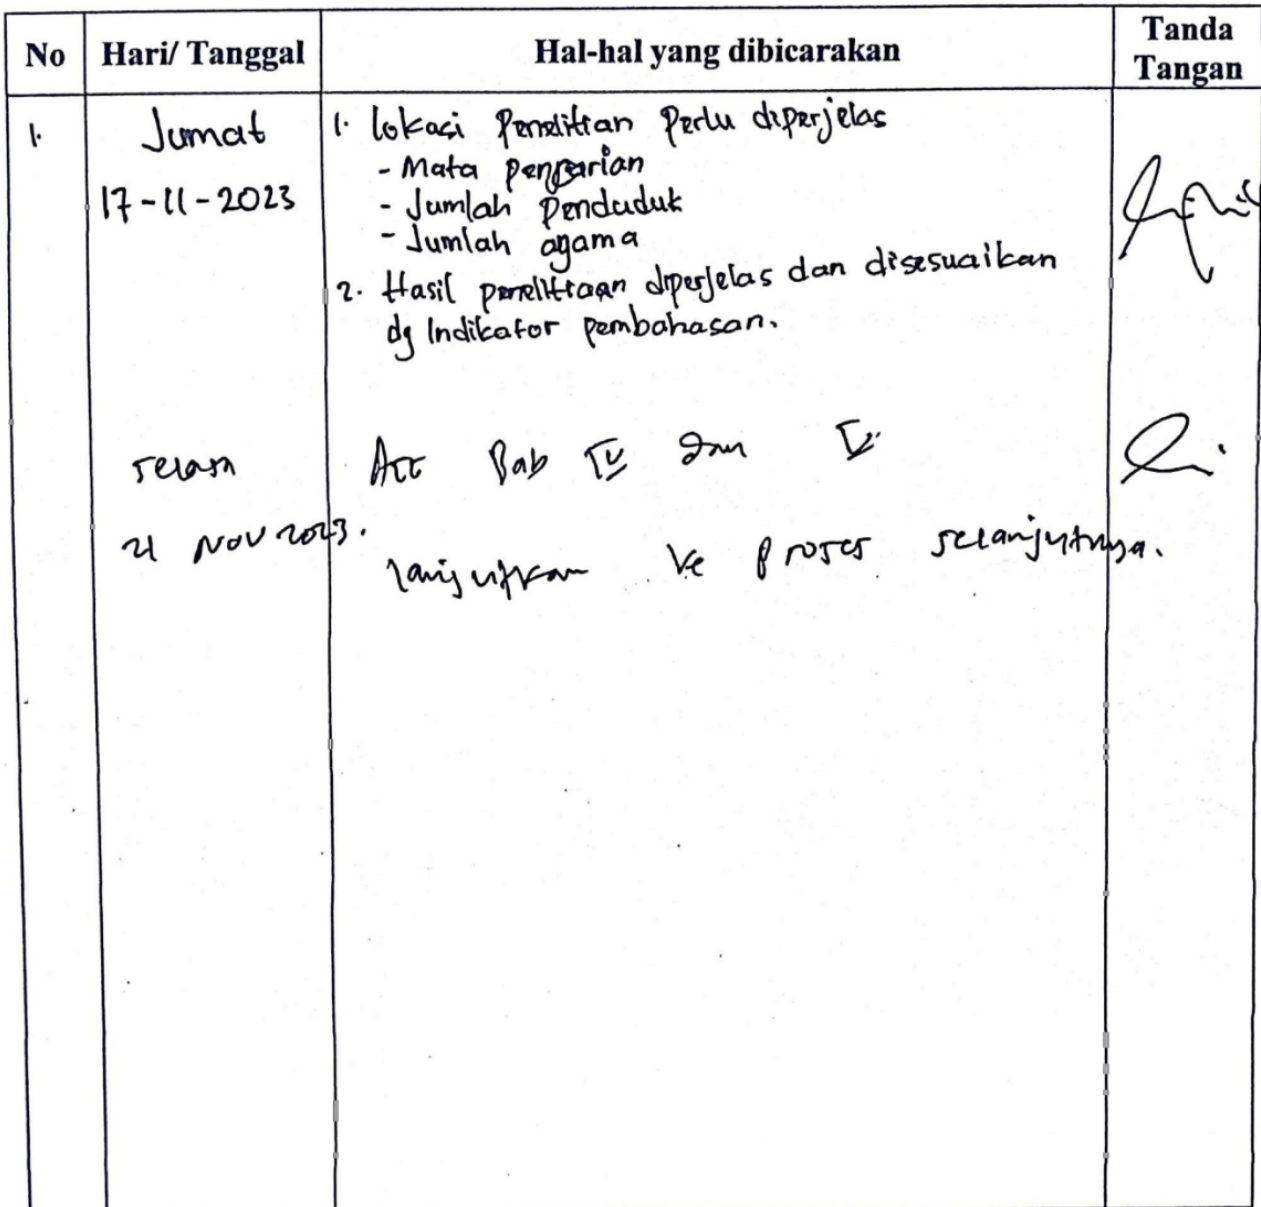 No Hari/ Tanggal Hal-hal yang dibicarakan Tanda Tangan
1. Jumat 1. Lokasi Penelitian Perlu diperjelas
- Mata pencarian
17-11-2023 - Jumlah Penduduk
- Jumlah agama
2. Hasil penelitiaan diperjelas dan disesuaikan
dg Indikator pembahasan.
selasa Acc Bab IV dan V
21 Nov 2023.
lanjutkan ke proses selanjutnya.